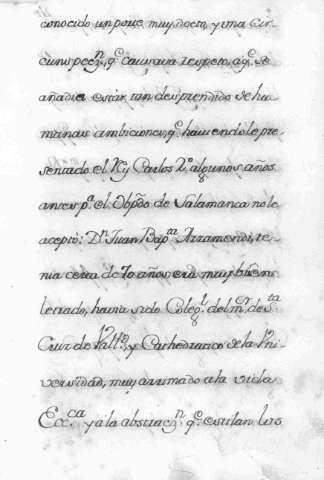 conocido un porte muy docto, y una cir-
cunspecn, qe causava respeto, aqe se
añadia estar tan desprendido de hu-
manas ambiciones, qe haviendole pre-
sentado el Ry Carlos 2o algunos años
antes pa el Obpdo de Salamanca no le
aceptó: Dn Juan Bapta Arramendi, te-
nia cerca de 70 años, era muy buen
letrado, havia sido Colegl del mor de Sta
Cruz de Vallid, y Cathedratico de la Vni-
versidad, muy arrimado a la vida
Ecca y a la abstraccn qe estilan los